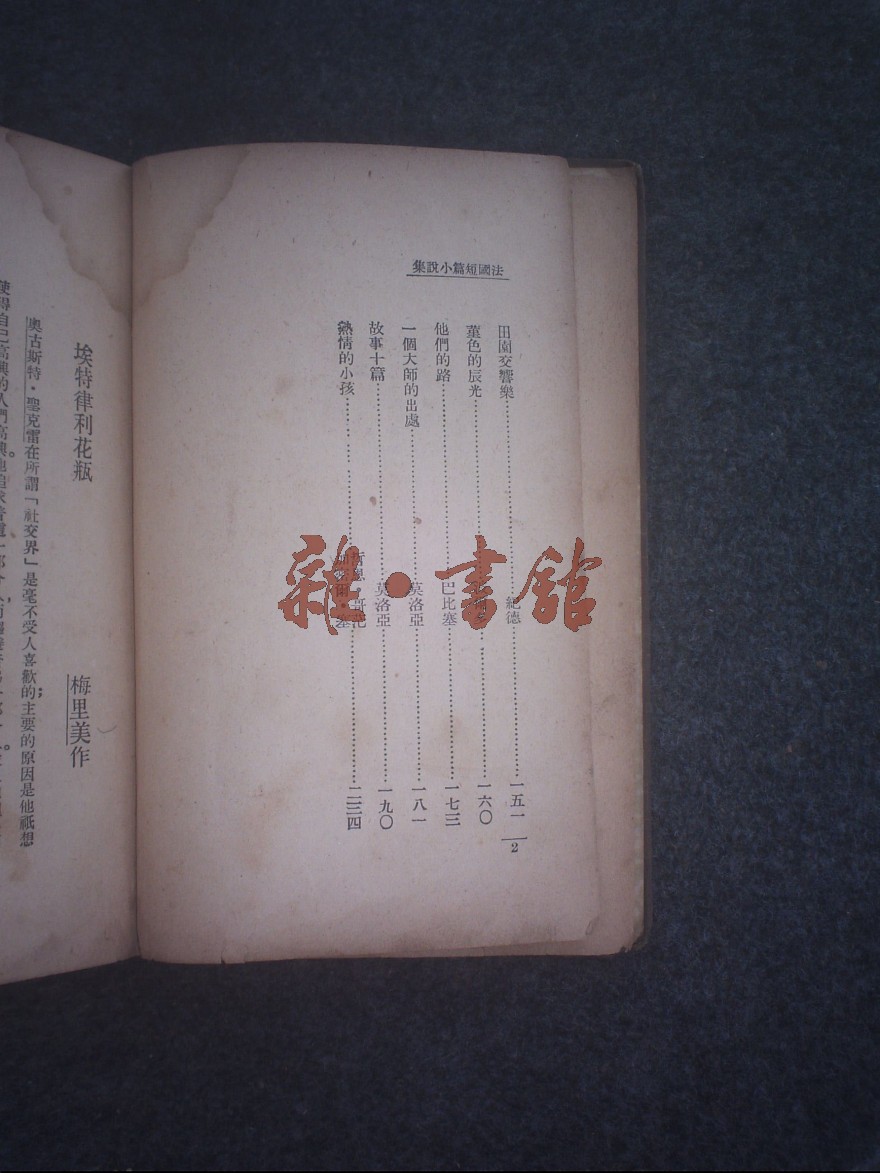 法國短篇小說集
田園交響樂……紀德……一五一
菫色的辰光……一六〇
他們的路……巴比塞……一七三
一個大師的出處……莫洛亞……一八一
故事十篇……莫洛亞……一九〇
熱情的小孩……二三四
2
埃特律利花瓶
梅里美作
奧古斯特・聖克雷在所謂「社交界」是毫不受人喜歡的；主要的原因是他祇想
雜・書舘